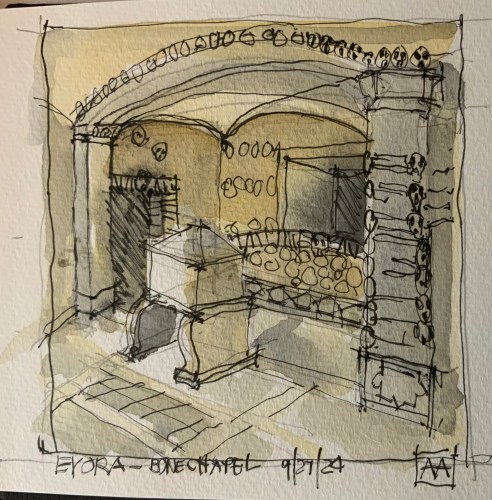 EVORA – BONE CHAPEL 9/27/24 AA